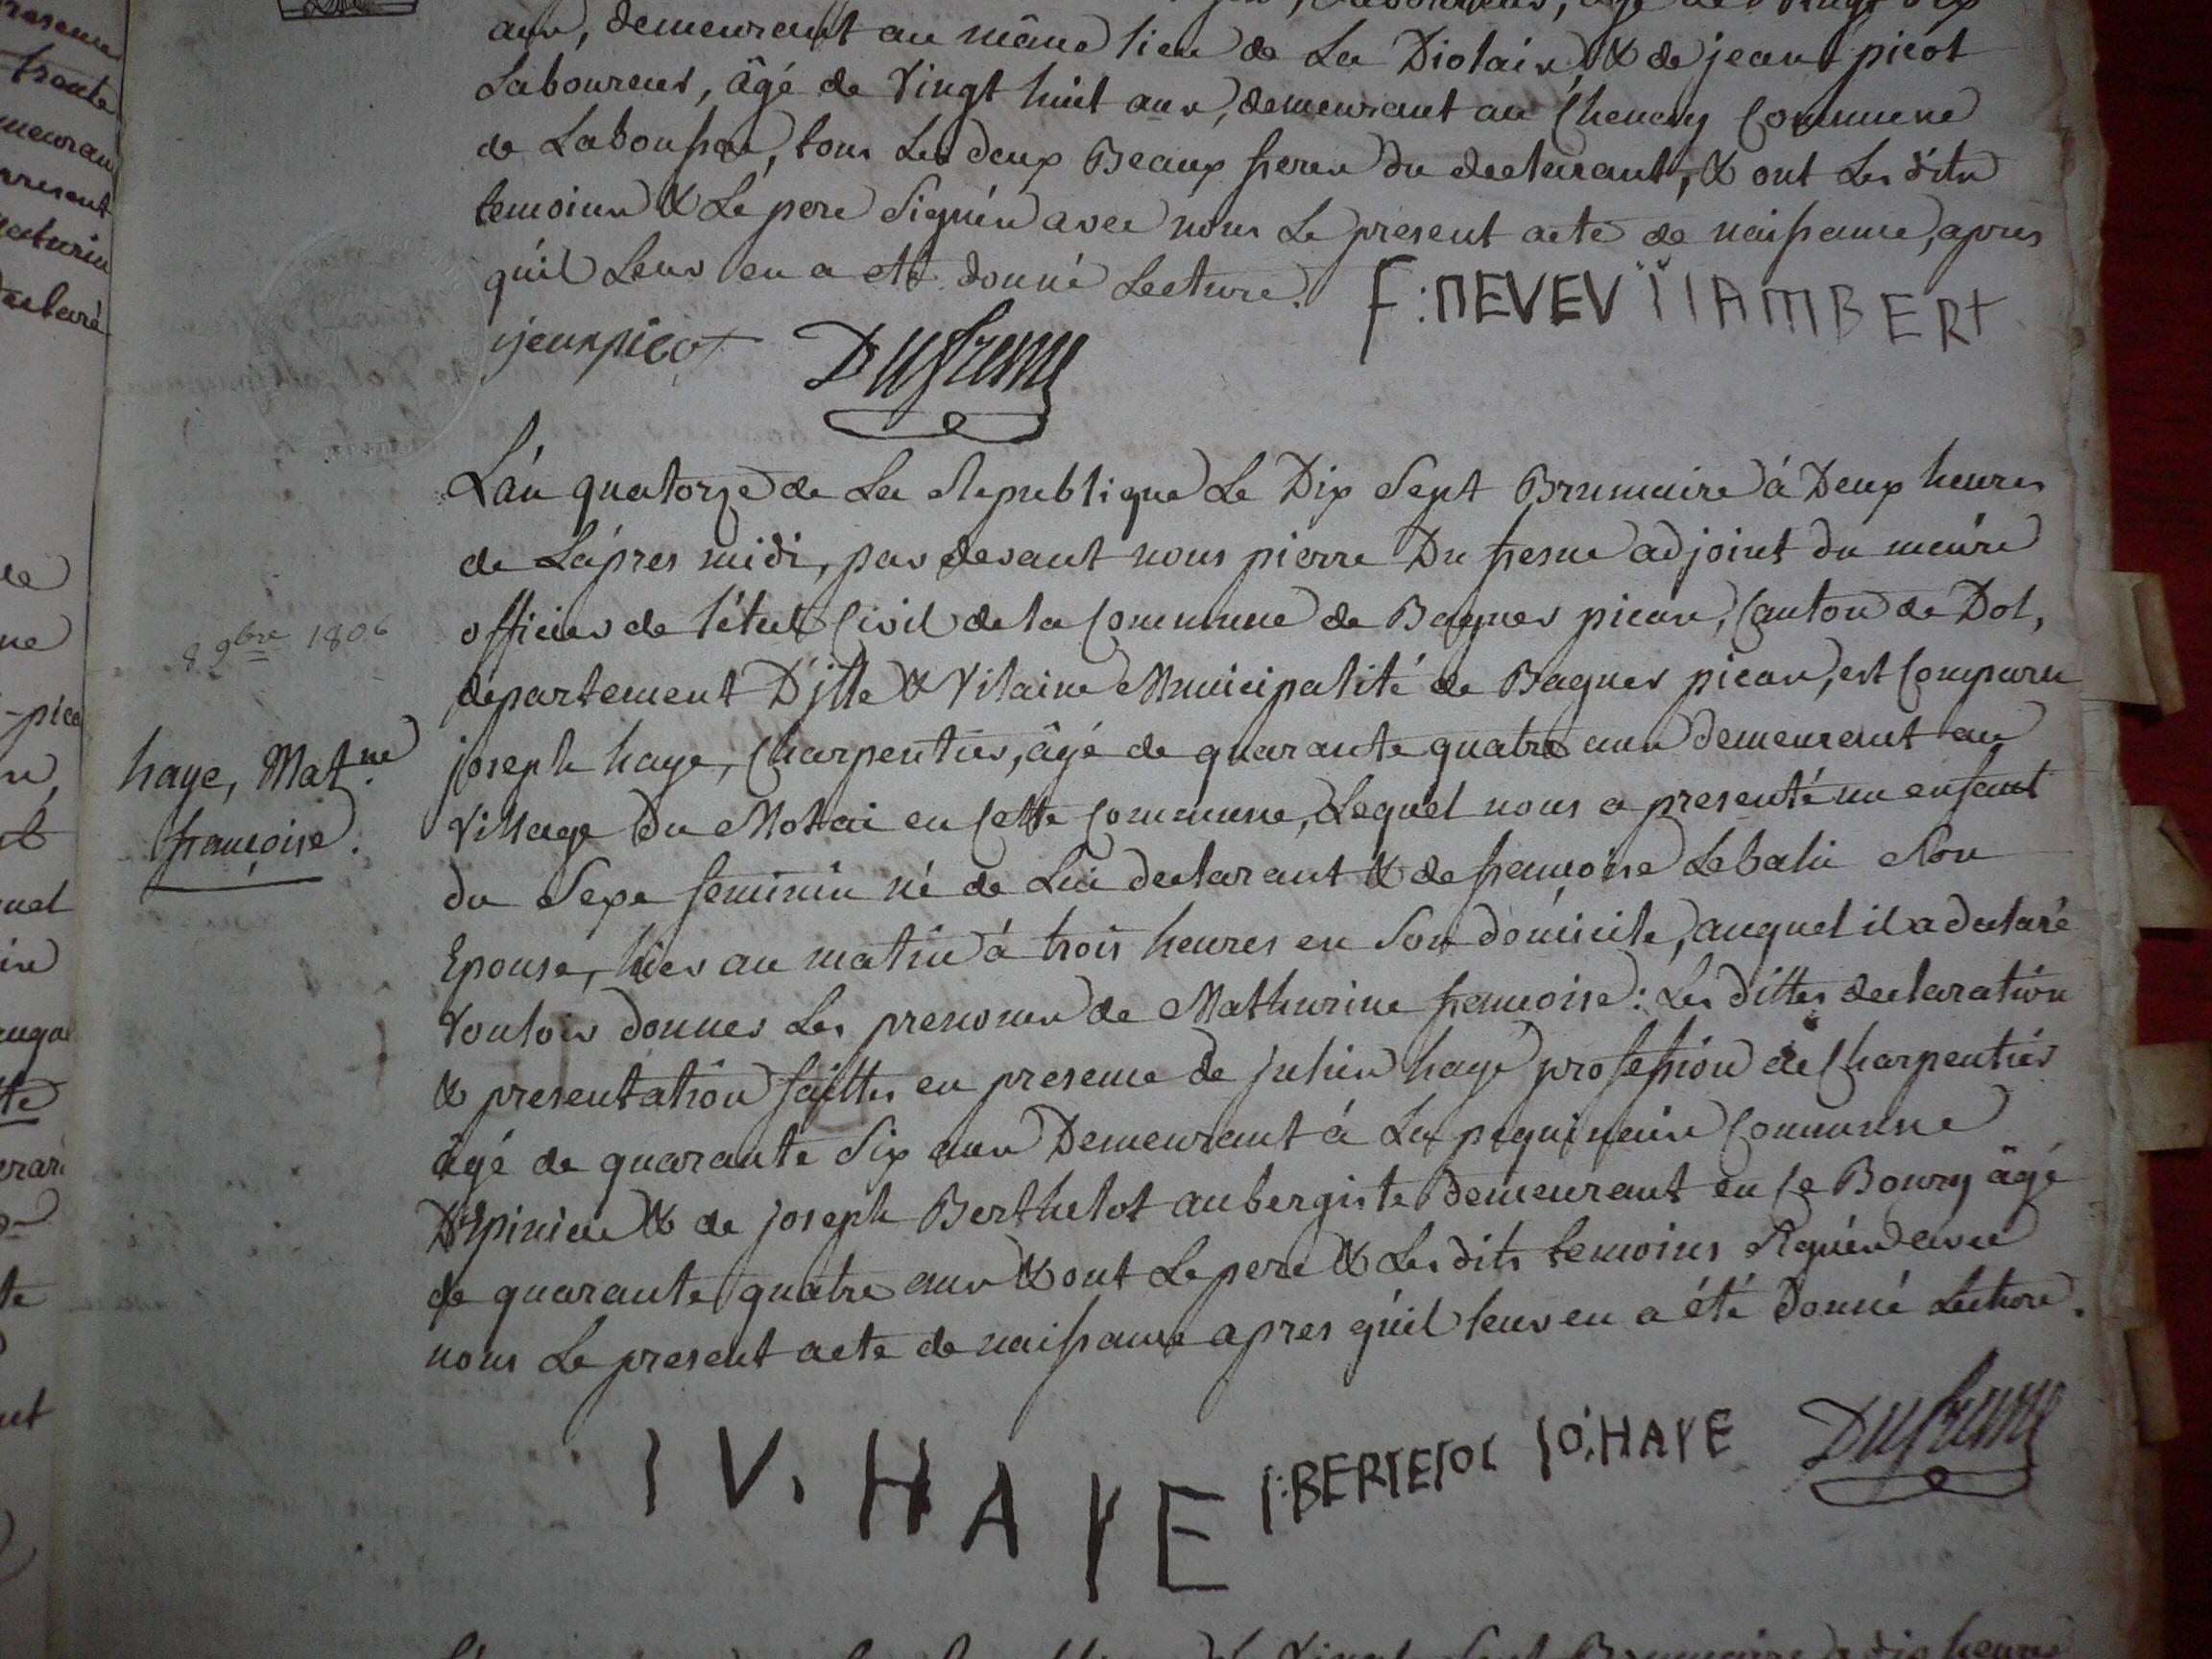 ans, demeurant au même lieu de La Diolais, & de jean picot
Laboureur, âgé de Vingt huit ans, demeurant au Chenay Commune
de Laboussac, tous Les deux Beaux freres du declarant, & ont Les dits
temoins & Le pere Signés avec nous Le present acte de naissance, apres
qu'il Leur en a eté donné Lecture.
F: NEVEV IIAMBERt
jean picot Dufresne
L'an quatorze de La Republique Le Dix Sept Brumaire à Deux heures
de L'apres midi, par devant nous pierre Du fresne adjoint du meire
officier de l'état Civil de la Commune de Baguer pican, Canton de Dol,
departement D'jlle & Vilaine Municipalité de Baguer pican, est Comparu
8 9bre 1806
joseph haye, Charpentier, âgé de quarante quatre ans demeurant au
haye, Matne
françoise.
Village du Motai en Cette Commune, Lequel nous a presenté un enfant
du Sexe feminin né de Lui declarant & de françoise Lebali Son
Epouse, hier au matin à trois heures en Son domicile, auquel il a declaré
Vouloir donner Les prenoms de Mathurine françoise: Les dittes declaration
& presentation faittes en presence de julien haye profession de Charpentier
âgé de quarante Six ans Demeurant à La Commune
D'Epiniac & de joseph Berthelot aubergiste Demeurant en Ce Bourg âgé
de quarante quatre ans & ont Le pere & Les dits temoins Signés avec
nous Le present acte de naissance apres qu'il leur en a été Donné Lecture.
IV. HAYE I:BERTELOT IO:HAYE Dufresne